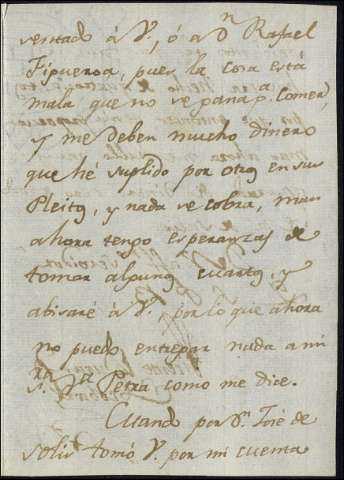 sentado à V., ó a Dn. Rafael
Figueroa, pues la cosa està
mala que no se gana pa. Comer,
y me deben mucho dinero
que hé suplido por otros en sus
Pleitos, y nada se cobra, mas
ahora tengo esperanzas de
tomar algunos cuartos, y
abisaré à V., por lo que ahora
no puedo entregar nada a mi
Sra. Da. Petra como me dice.
Cuando por Dn. José de
Solis tomó V. por mi cuenta